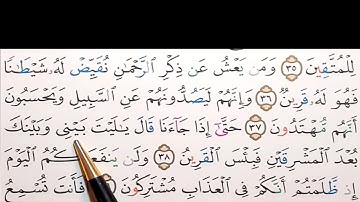 لِلْمُتَّقِينَ ٣٥ وَمَن يَعْشُ عَن ذِكْرِ الرَّحْمَٰنِ نُقَيِّضْ لَهُۥ شَيْطَٰنًا
فَهُوَ لَهُۥ قَرِينٌ ٣٦ وَإِنَّهُمْ لَيَصُدُّونَهُمْ عَنِ السَّبِيلِ وَيَحْسَبُونَ
أَنَّهُم مُّهْتَدُونَ ٣٧ حَتَّىٰٓ إِذَا جَآءَنَا قَالَ يَٰلَيْتَ بَيْنِى وَبَيْنَكَ
بُعْدَ الْمَشْرِقَيْنِ فَبِئْسَ الْقَرِينُ ٣٨ وَلَن يَنفَعَكُمُ الْيَوْمَ
إِذ ظَّلَمْتُمْ أَنَّكُمْ فِى الْعَذَابِ مُشْتَرِكُونَ ٣٩ أَفَأَنتَ تُسْمِعُ